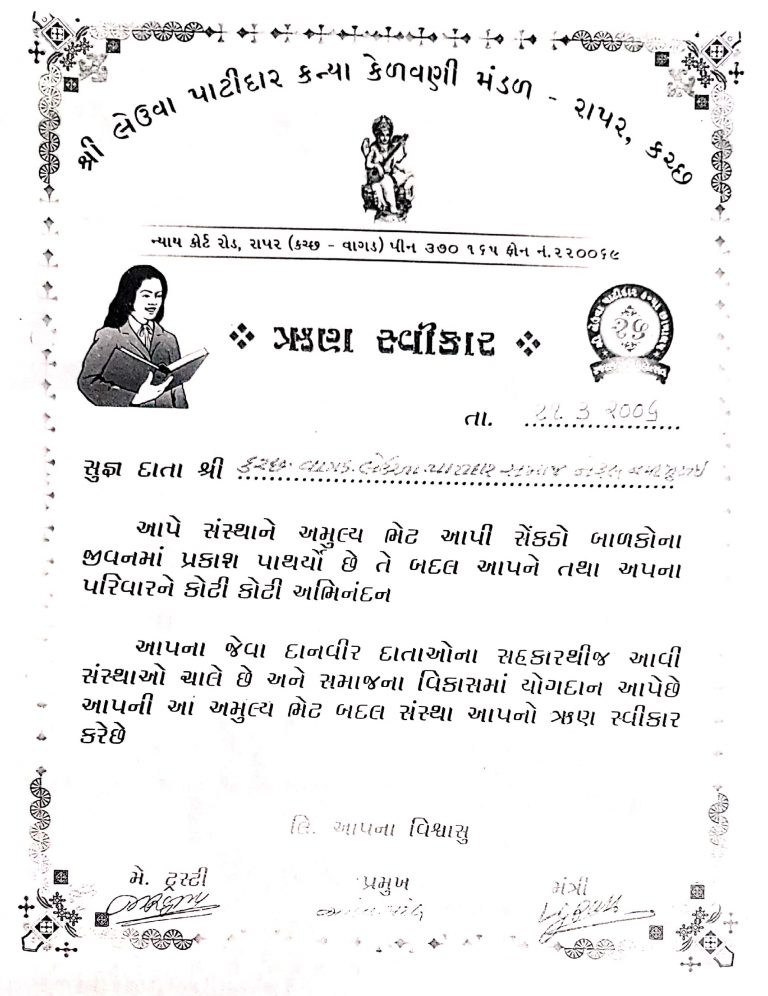 શ્રી લેઉવા પાટીદાર કન્યા કેળવણી મંડળ - રાપર, કચ્છ
ન્યાય કોર્ટ રોડ, રાપર (કચ્છ - વાગડ) પીન ૩૭૦ ૧૬૫ ફોન નં.૨૨૦૦૬૯
ઋણ સ્વીકાર
તા. ૨૬. ૩ ૨૦૦૬
સુજ્ઞ દાતા શ્રી કચ્છ વાગડ લેઉવા પાટીદાર સમાજ
આપે સંસ્થાને અમુલ્ય ભેટ આપી સેંકડો બાળકોના
જીવનમાં પ્રકાશ પાથર્યો છે તે બદલ આપને તથા અપના
પરિવારને કોટી કોટી અભિનંદન
આપના જેવા દાનવીર દાતાઓના સહકારથીજ આવી
સંસ્થાઓ ચાલે છે અને સમાજના વિકાસમાં યોગદાન આપેછે
આપની આં અમુલ્ય ભેટ બદલ સંસ્થા આપનો ઋણ સ્વીકાર
કરેછે
લિ. આપના વિશ્વાસુ
મે. ટ્રસ્ટી પ્રમુખ મંત્રી